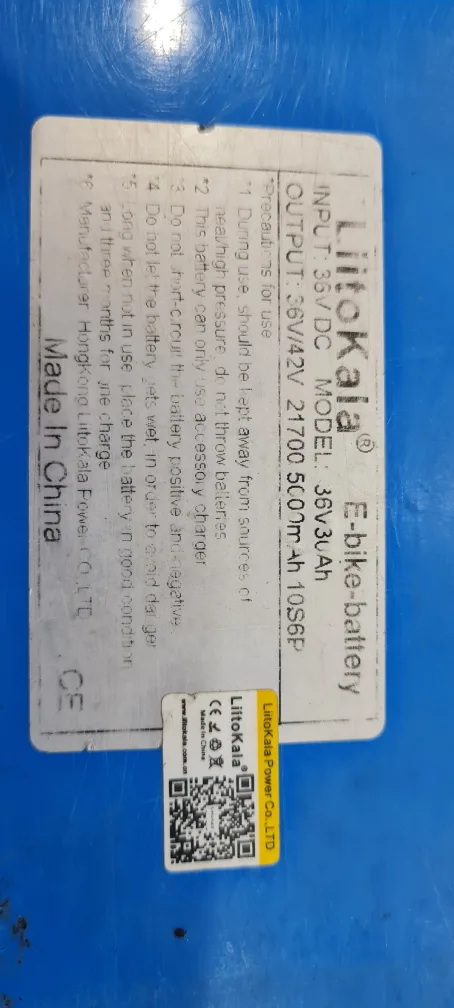 LiitoKala® E-bike-battery
INPUT: 36V DC MODEL: 36V30Ah
OUTPUT: 36V/42V 21700 5000mAh 10S6P
*Precautions for use
*1 During use, should be kept away from sources of
heat/high pressure, do not throw batteries
*2 This battery can only use accessory charger
*3 Do not short-circuit the battery positive and negative
*4 Do not let the battery gets wet in order to avoid danger
*5 Long when not in use, place the battery in good condition
and three months for one charge
*6 Manufacturer: HongKong LiitoKala Power CO.,LTD
Made In China CE
LiitoKala Power Co.,LTD
LiitoKala®
CE
Made in China
www.liitokala.com.cn